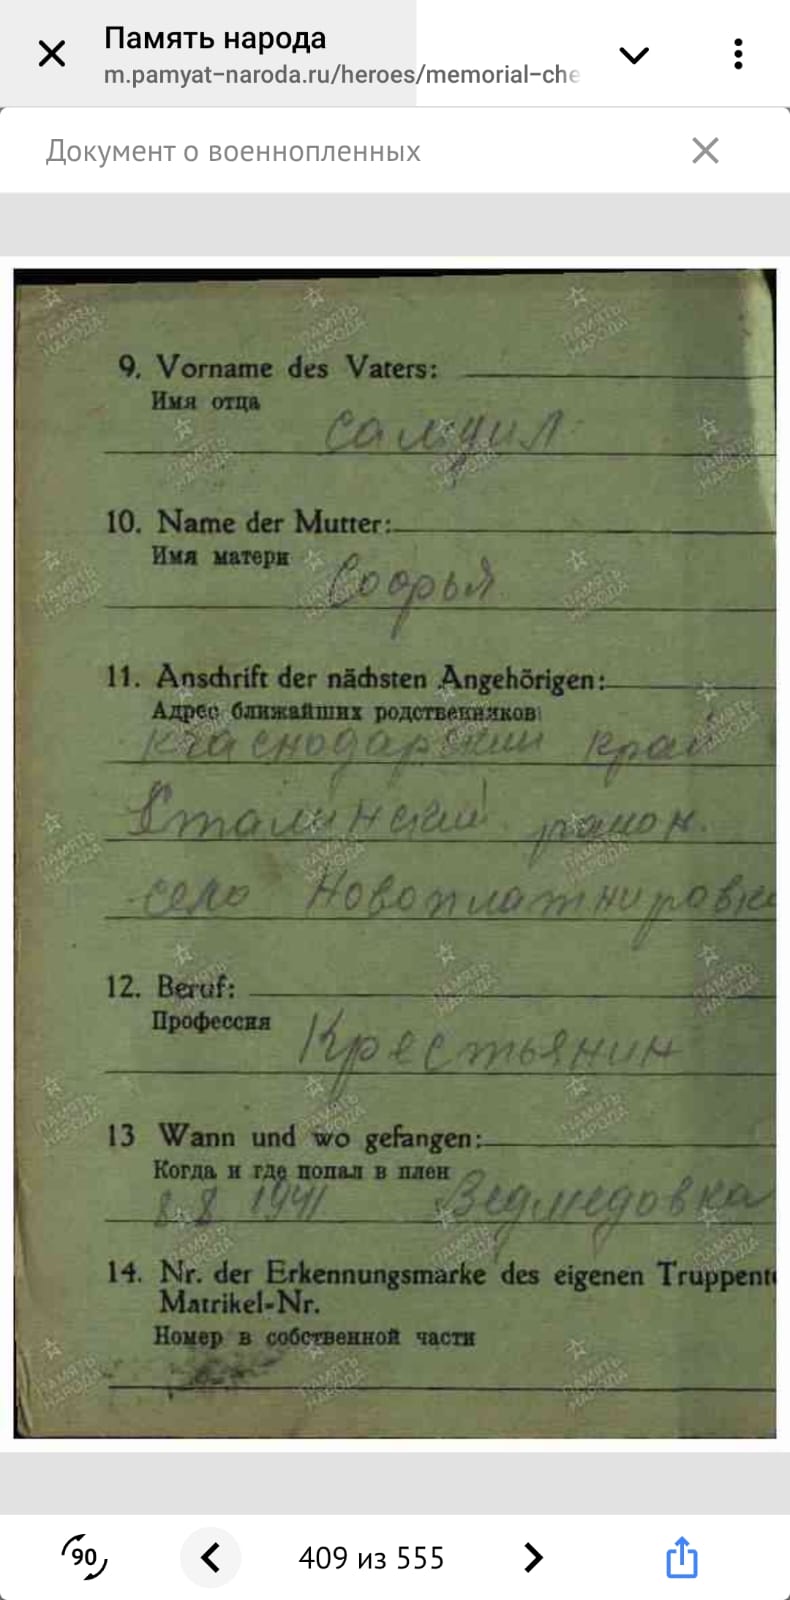 Память народа
m.pamyat-naroda.ru/heroes/memorial-che
Документ о военнопленных
9. Vorname des Vaters:
Имя отца
Самуил
10. Name der Mutter:
Имя матери
Софья
11. Anschrift der nächsten Angehörigen:
Адрес ближайших родственников
Краснодарский край
Сталинский район.
село Новоплатнировка
12. Beruf:
Профессия
Крестьянин
13 Wann und wo gefangen:
Когда и где попал в плен
8.8 1941 Ведмедовка
14. Nr. der Erkennungsmarke des eigenen Truppente
Matrikel-Nr.
Номер в собственной части
90
409 из 555
ПАМЯТЬ НАРОДА